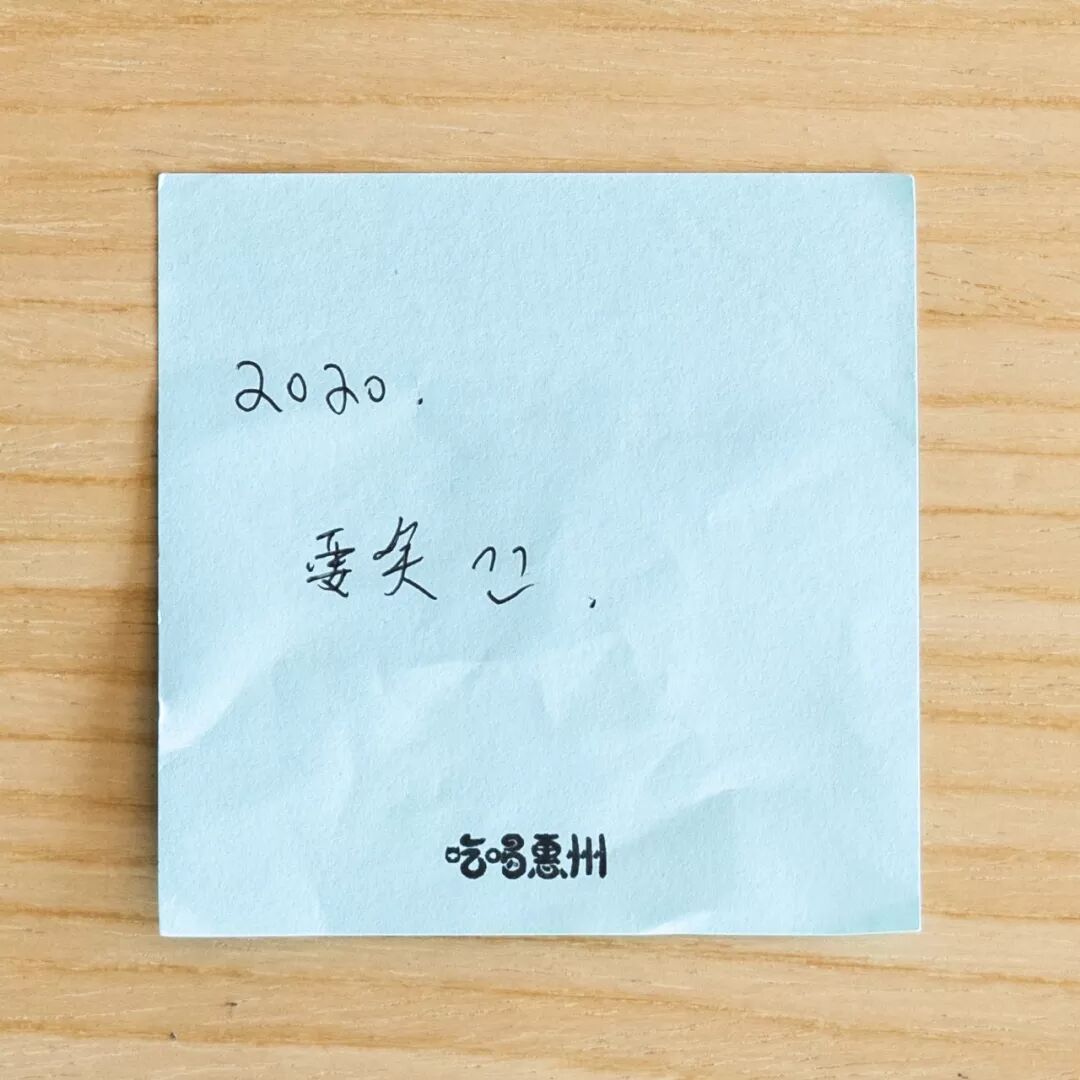 2020.
要
吃喝惠州